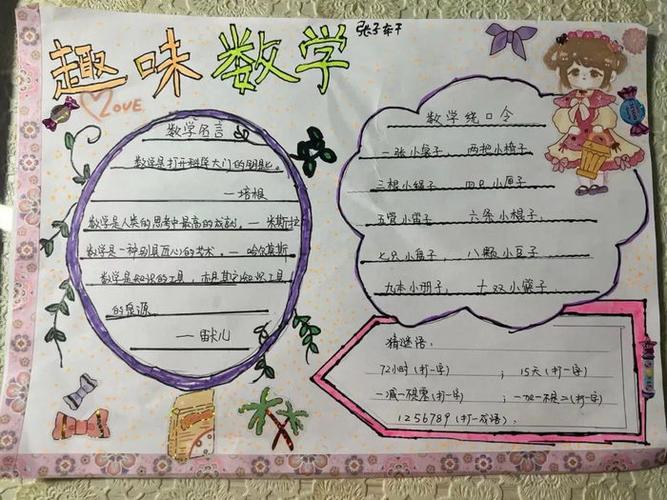 趣味数学
LOVE
数学名言
数学是打开科学大门的钥匙。
—培根
数学是人类的思考中最高的成就。—米斯拉
数学是一种别具匠心的艺术。—哈尔莫斯
数学是知识的工具，亦是其它知识工具
的泉源
—笛卡儿
数学绕口令
一张小桌子 两把小椅子
三根小绳子 四只小匣子
五管小笛子 六条小棍子
七只小盘子 八颗小豆子
九本小册子 十双小筷子
猜谜语：
72小时(打一字) ； 15天(打一字)
一减一不是零(打一字) ； 一加一不是二(打一字)
1256789(打一成语)．